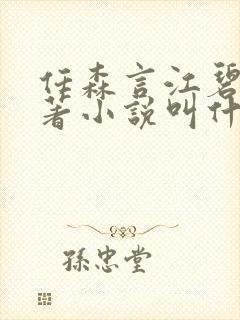 任森言江碧
著小說叫什
孫忠堂